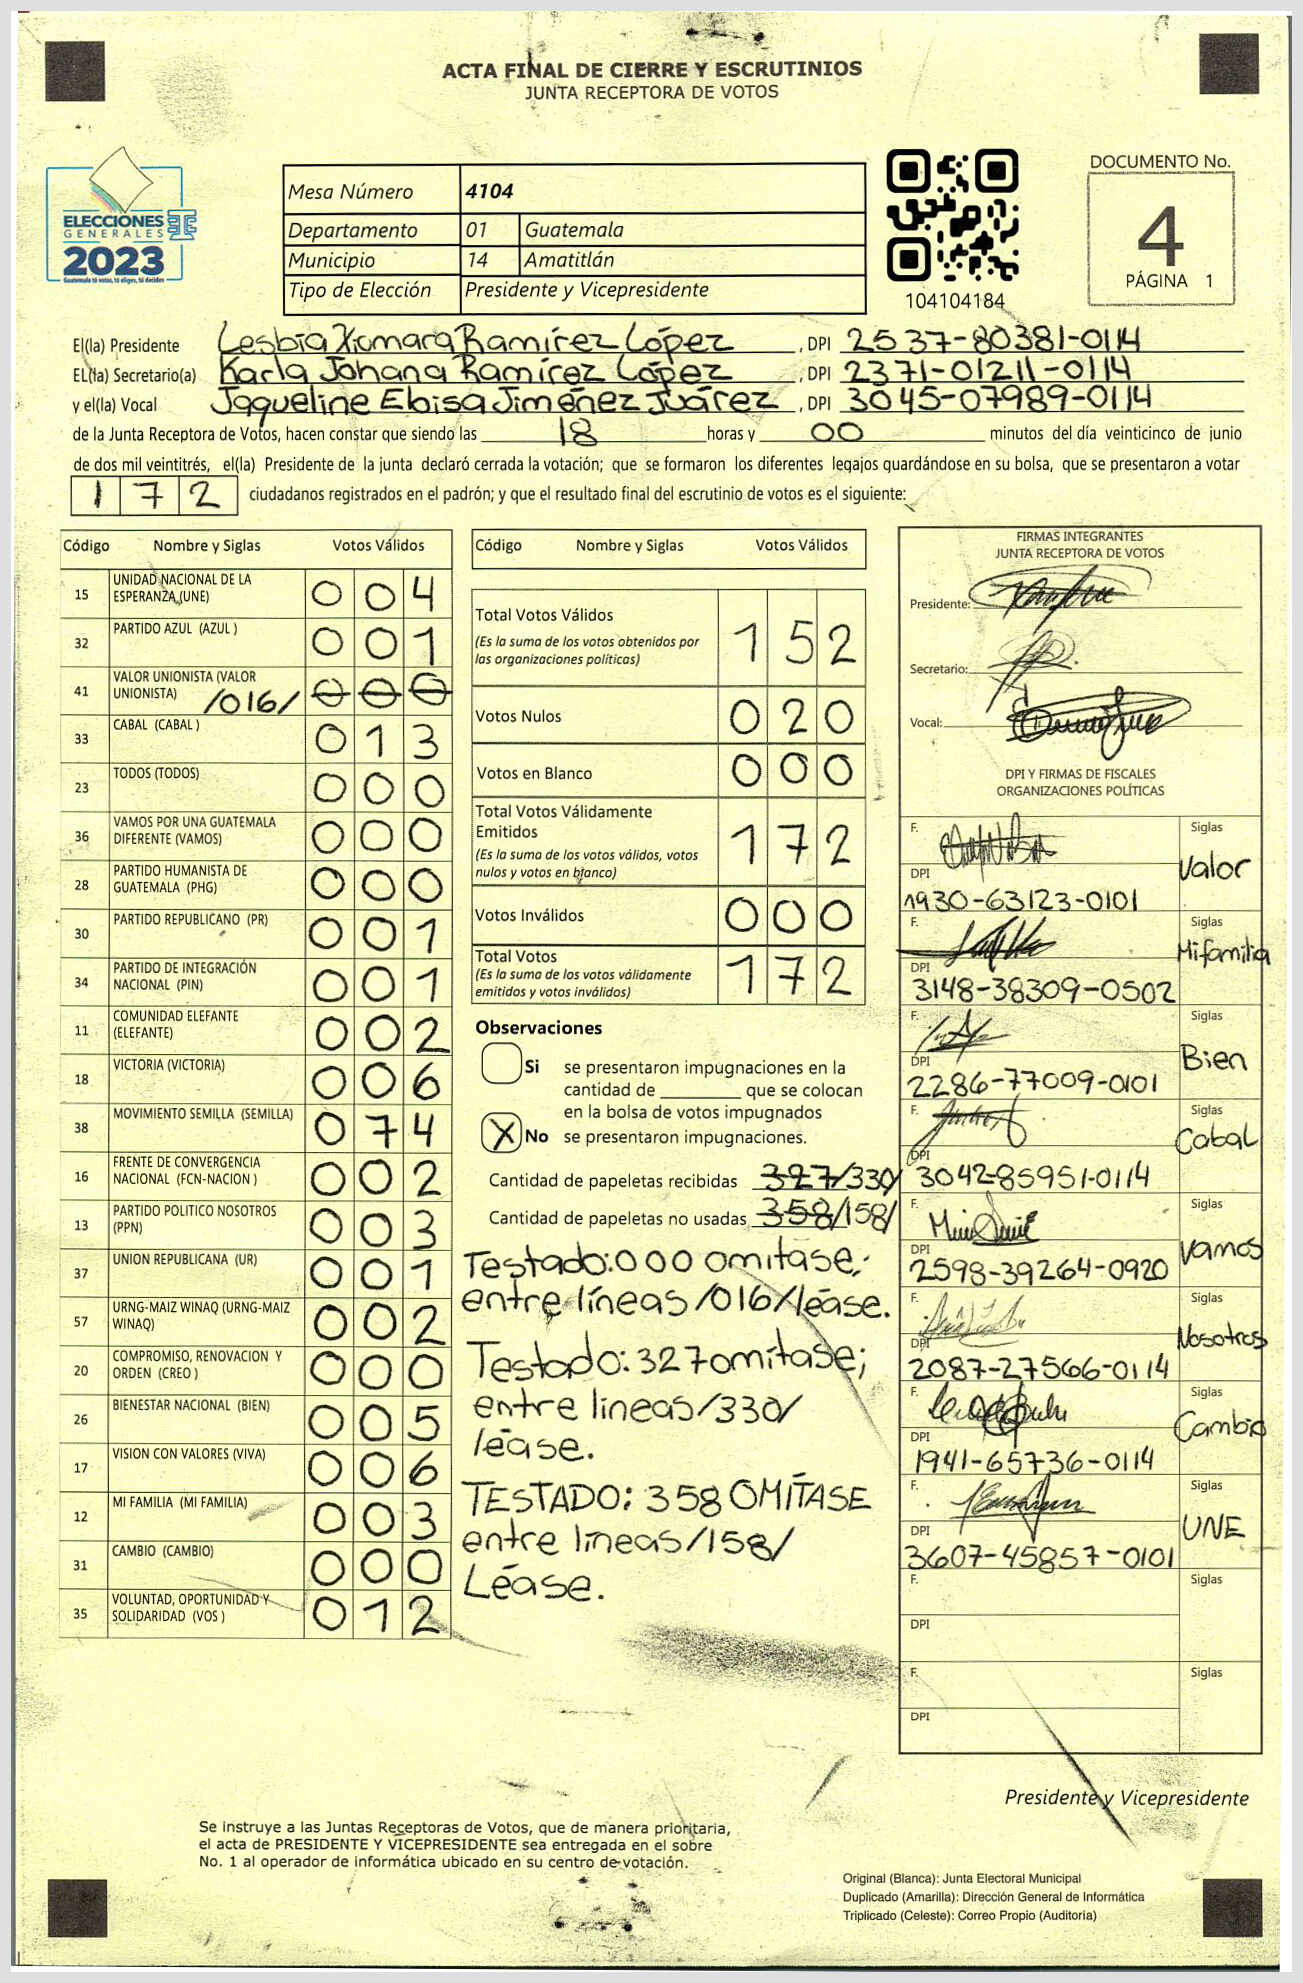 ACTA FINAL DE CIERRE Y ESCRUTINIOS
JUNTA RECEPTORA DE VOTOS
ELECCIONES
GENERALES
2023
Guatemala tú votas, tú eliges, tú decides
Mesa Número 4104
Departamento 01 Guatemala
Municipio 14 Amatitlán
Tipo de Elección Presidente y Vicepresidente
104104184
DOCUMENTO No.
4
PÁGINA 1
El(la) Presidente Lesbia Xiomara Ramírez López, DPI 2537-80381-0114
EL(la) Secretario(a) Karla Johana Ramírez López, DPI 2371-01211-0114
y el(la) Vocal Jaqueline Eloisa Jiménez Juárez, DPI 3045-07989-0114
de la Junta Receptora de Votos, hacen constar que siendo las 18 horas y 00 minutos del día veinticinco de junio
de dos mil veintitrés, el(la) Presidente de la junta declaró cerrada la votación; que se formaron los diferentes legajos guardándose en su bolsa, que se presentaron a votar
172 ciudadanos registrados en el padrón; y que el resultado final del escrutinio de votos es el siguiente:
Código Nombre y Siglas Votos Válidos
15 UNIDAD NACIONAL DE LA ESPERANZA (UNE) 004
32 PARTIDO AZUL (AZUL ) 001
41 VALOR UNIONISTA (VALOR UNIONISTA) /016/ 000
33 CABAL (CABAL ) 013
23 TODOS (TODOS) 000
36 VAMOS POR UNA GUATEMALA DIFERENTE (VAMOS) 000
28 PARTIDO HUMANISTA DE GUATEMALA (PHG) 000
30 PARTIDO REPUBLICANO (PR) 001
34 PARTIDO DE INTEGRACIÓN NACIONAL (PIN) 001
11 COMUNIDAD ELEFANTE (ELEFANTE) 002
18 VICTORIA (VICTORIA) 006
38 MOVIMIENTO SEMILLA (SEMILLA) 074
16 FRENTE DE CONVERGENCIA NACIONAL (FCN-NACION ) 002
13 PARTIDO POLITICO NOSOTROS (PPN) 003
37 UNION REPUBLICANA (UR) 001
57 URNG-MAIZ WINAQ (URNG-MAIZ WINAQ) 002
20 COMPROMISO, RENOVACION Y ORDEN (CREO ) 000
26 BIENESTAR NACIONAL (BIEN) 005
17 VISION CON VALORES (VIVA) 006
12 MI FAMILIA (MI FAMILIA) 003
31 CAMBIO (CAMBIO) 000
35 VOLUNTAD, OPORTUNIDAD Y SOLIDARIDAD (VOS ) 012
Código Nombre y Siglas Votos Válidos
Total Votos Válidos 152
(Es la suma de los votos obtenidos por
las organizaciones políticas)
Votos Nulos 020
Votos en Blanco 000
Total Votos Válidamente
Emitidos 172
(Es la suma de los votos válidos, votos
nulos y votos en blanco)
Votos Inválidos 000
Total Votos 172
(Es la suma de los votos válidamente
emitidos y votos inválidos)
Observaciones
Si se presentaron impugnaciones en la
cantidad de ________ que se colocan
en la bolsa de votos impugnados
X No se presentaron impugnaciones.
Cantidad de papeletas recibidas 327/330/
Cantidad de papeletas no usadas 358/158/
Testado: 000 omitase;
entre líneas /016/ léase.
Testado: 327 omítase;
entre lineas /330/
léase.
TESTADO: 358 OMÍTASE
entre líneas /158/
Léase.
FIRMAS INTEGRANTES
JUNTA RECEPTORA DE VOTOS
Presidente:
Secretario:
Vocal:
DPI Y FIRMAS DE FISCALES
ORGANIZACIONES POLÍTICAS
F. Siglas
Valor
DPI
1930-63123-0101
F. Siglas
Mi familia
DPI
3148-38309-0502
F. Siglas
Bien
DPI
2286-77009-0101
F. Siglas
Cabal
DPI
3042-85951-0114
F. Siglas
Vamos
DPI
2598-39264-0920
F. Siglas
Nosotros
DPI
2087-27566-0114
F. Siglas
Cambio
DPI
1941-65736-0114
F. Siglas
UNE
DPI
3607-45857-0101
F. Siglas
DPI
F. Siglas
DPI
Presidente y Vicepresidente
Se instruye a las Juntas Receptoras de Votos, que de manera prioritaria,
el acta de PRESIDENTE Y VICEPRESIDENTE sea entregada en el sobre
No. 1 al operador de informática ubicado en su centro de votación.
Original (Blanca): Junta Electoral Municipal
Duplicado (Amarilla): Dirección General de Informática
Triplicado (Celeste): Correo Propio (Auditoria)